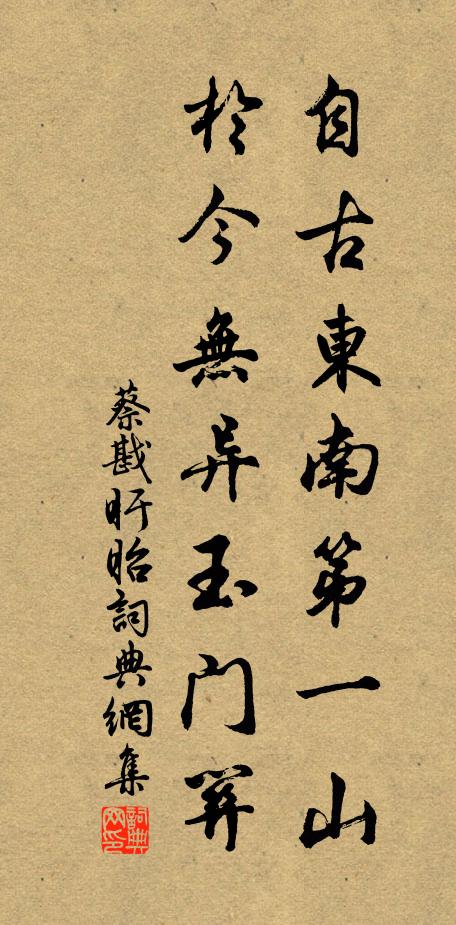 自古東南第一山
於今無异玉门关
蔡戡盱眙詞典網集
詞典网印